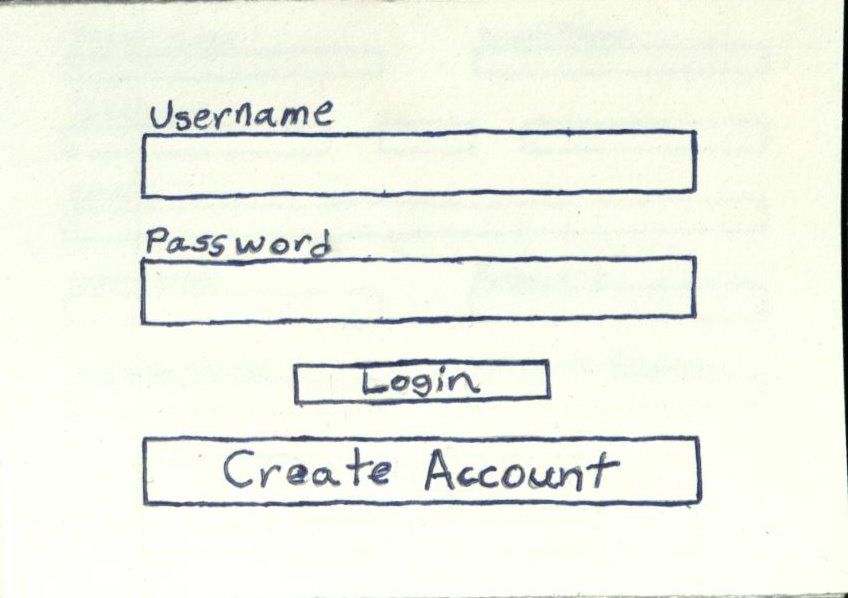 Username
Password
Login
Create Account